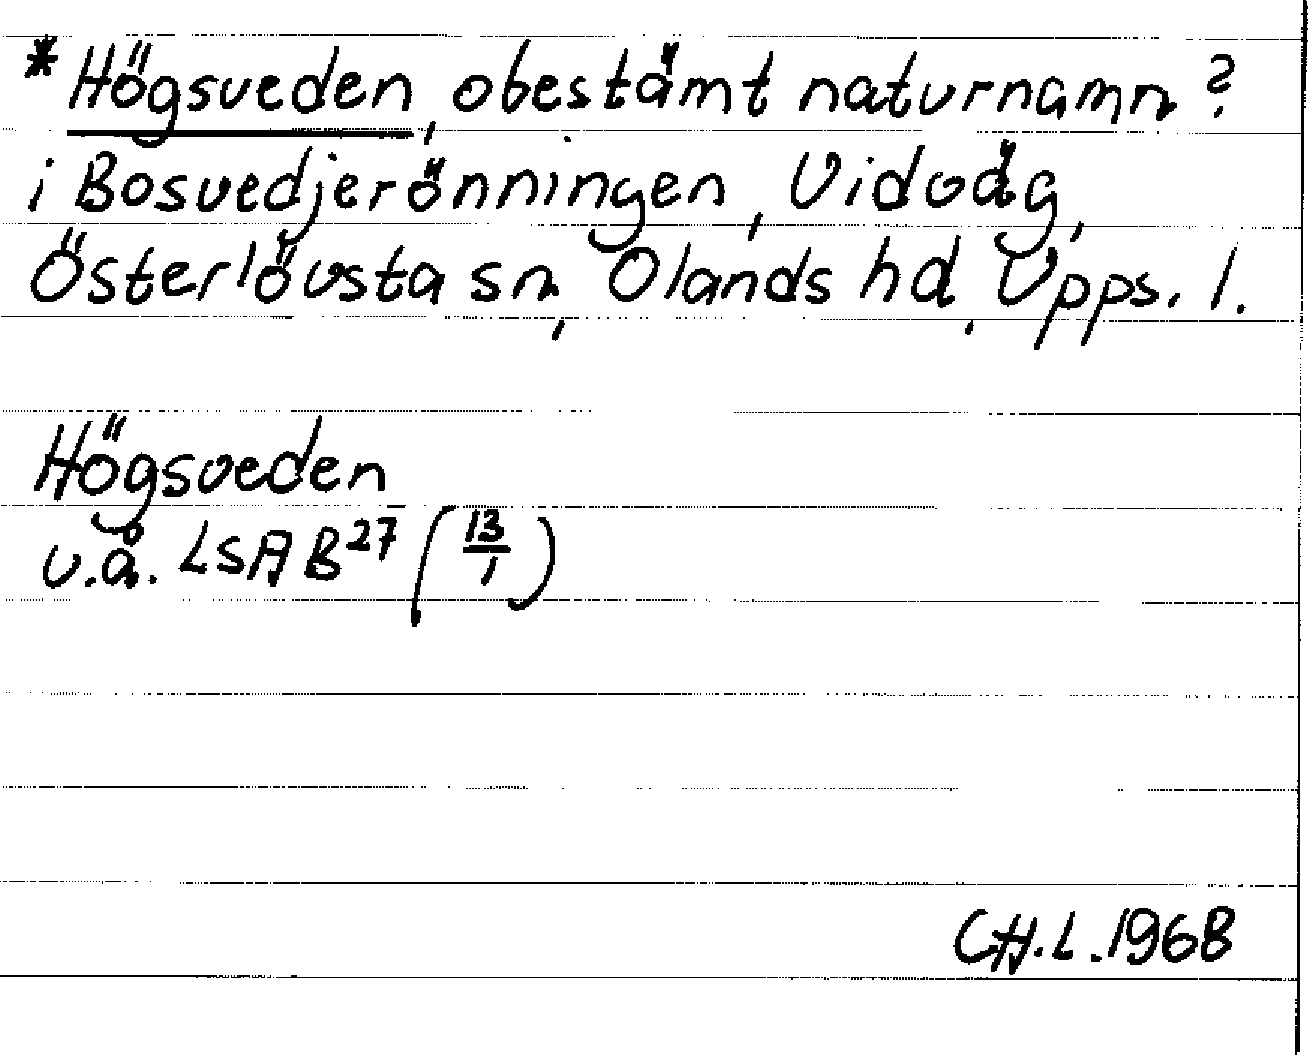 *Högsveden, obestämt naturnamn?
i Bosvedjerönningen, Vidvåg,
Österlövsta sn, Olands hd, Upps. l.
Högsveden
u.å. LSA B27 (13/1)
CH.L.1968